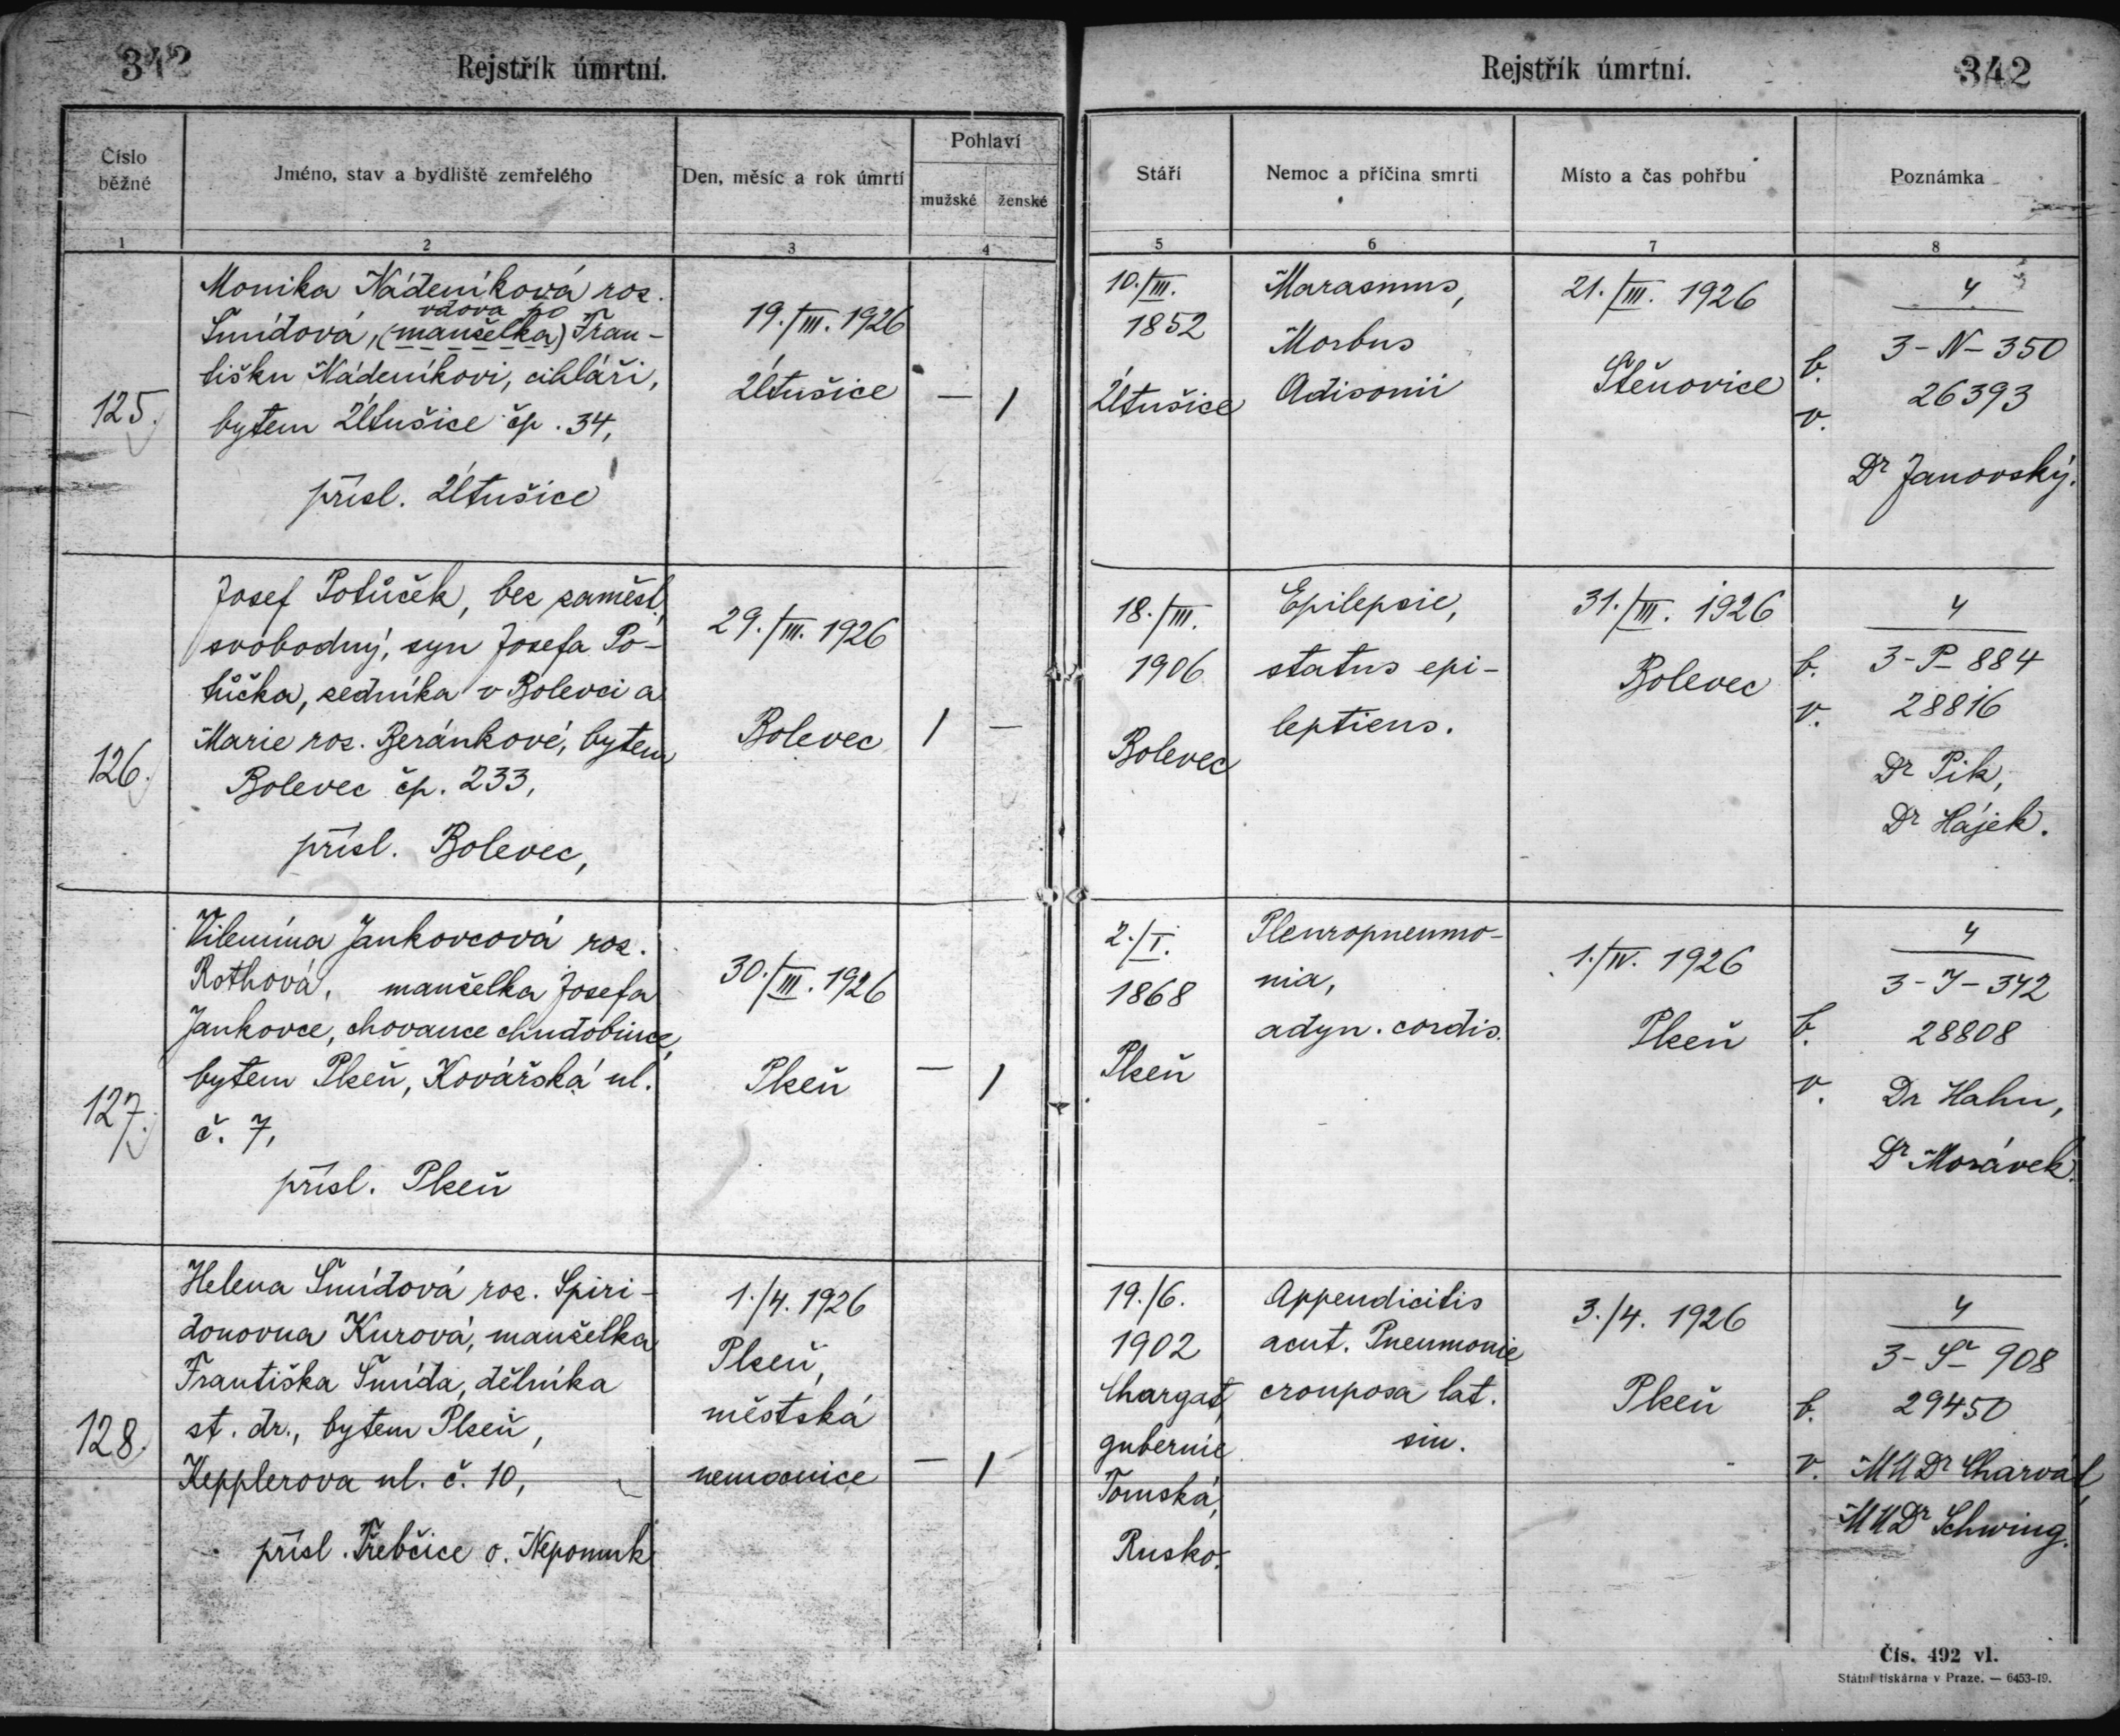 342
Rejstřík úmrtní.
Číslo běžné
Jméno, stav a bydliště zemřelého
Den, měsíc a rok úmrtí
Pohlaví
mužské
ženské
1
2
3
4
125.
Monika Nádeníková roz.
vdova po
Šmídová, (manželka) Fran-
tišku Nádeníkovi, cihláři,
bytem Útušice čp. 34,
přísl. Útušice
19./III. 1926
Útušice
— 1
126.
Josef Potůček, bez zaměst.,
svobodný, syn Josefa Po-
tůčka, zedníka v Bolevci a
Marie roz. Beránkové, bytem
Bolevec čp. 233,
přísl. Bolevec,
29./III. 1926
Bolevec
1 —
127.
Vilemína Jankovcová roz.
Rothová, manželka Josefa
Jankovce, chovance chudobince,
bytem Plzeň, Kovářská ul.
č. 7,
přísl. Plzeň
30./III. 1926
Plzeň
— 1
128.
Helena Šmídová roz. Spiri-
donovna Kurová, manželka
Františka Šmída, dělníka
st. dr., bytem Plzeň,
Kepplerova ul. č. 10,
přísl. Třebčice o. Nepomuk
1./4. 1926
Plzeň,
městská
nemocnice
— 1
Rejstřík úmrtní.
342
Stáří
Nemoc a příčina smrti
Místo a čas pohřbu
Poznámka
5
6
7
8
10./III.
1852
Útušice
Marasmus,
Morbus
Adisonii
21./III. 1926
Štěnovice
b.
v.
4
3-N-350
26393
Dr Janovský.
18./III.
1906
Bolevec
Epilepsie,
status epi-
lepticus.
31./III. 1926
Bolevec
b.
v.
4
3-P-884
28816
Dr Pik,
Dr Hájek.
2./I.
1868
Plzeň
Pleuropneumo-
nia,
adyn. cordis.
1./IV. 1926
Plzeň
b.
v.
4
3-J-342
28808
Dr Hahn,
Dr Morávek.
19./6.
1902
Chargat,
gubernie
Tomská,
Rusko.
Appendicitis
acut. Pneumonie
crouposa lat.
sin.
3./4. 1926
Plzeň
b.
v.
4
3-Š-908
29450
MUDr Charvát,
MUDr Schwing.
Čís. 492 vl.
Státní tiskárna v Praze. — 6453-19.